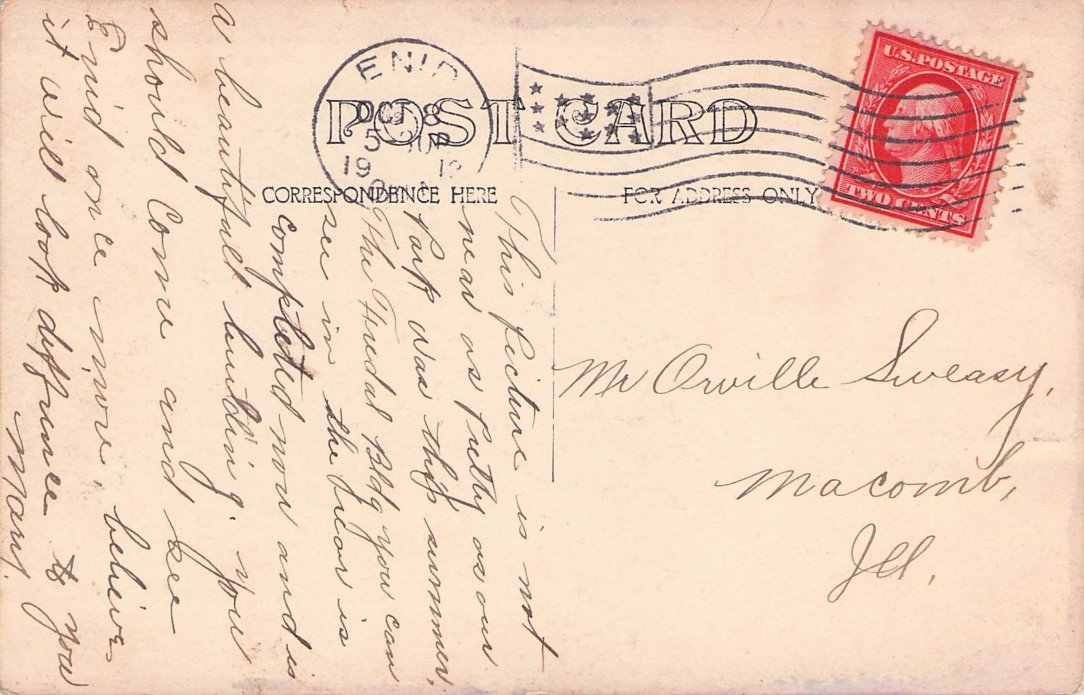 POST CARD
CORRESPONDENCE HERE
FOR ADDRESS ONLY
ENID
OCT 8
5 30P
19
U.S. POSTAGE
TWO CENTS
Mr Orville Sweasy,
Macomb,
Ill.
This picture is not
near as putty as our
Park was this summer.
The Fredal Bldg you can
see in the rear is
completed now and is
a beautifull building. you
should Come and see
Enid once more, believe
it will look diffrence to you